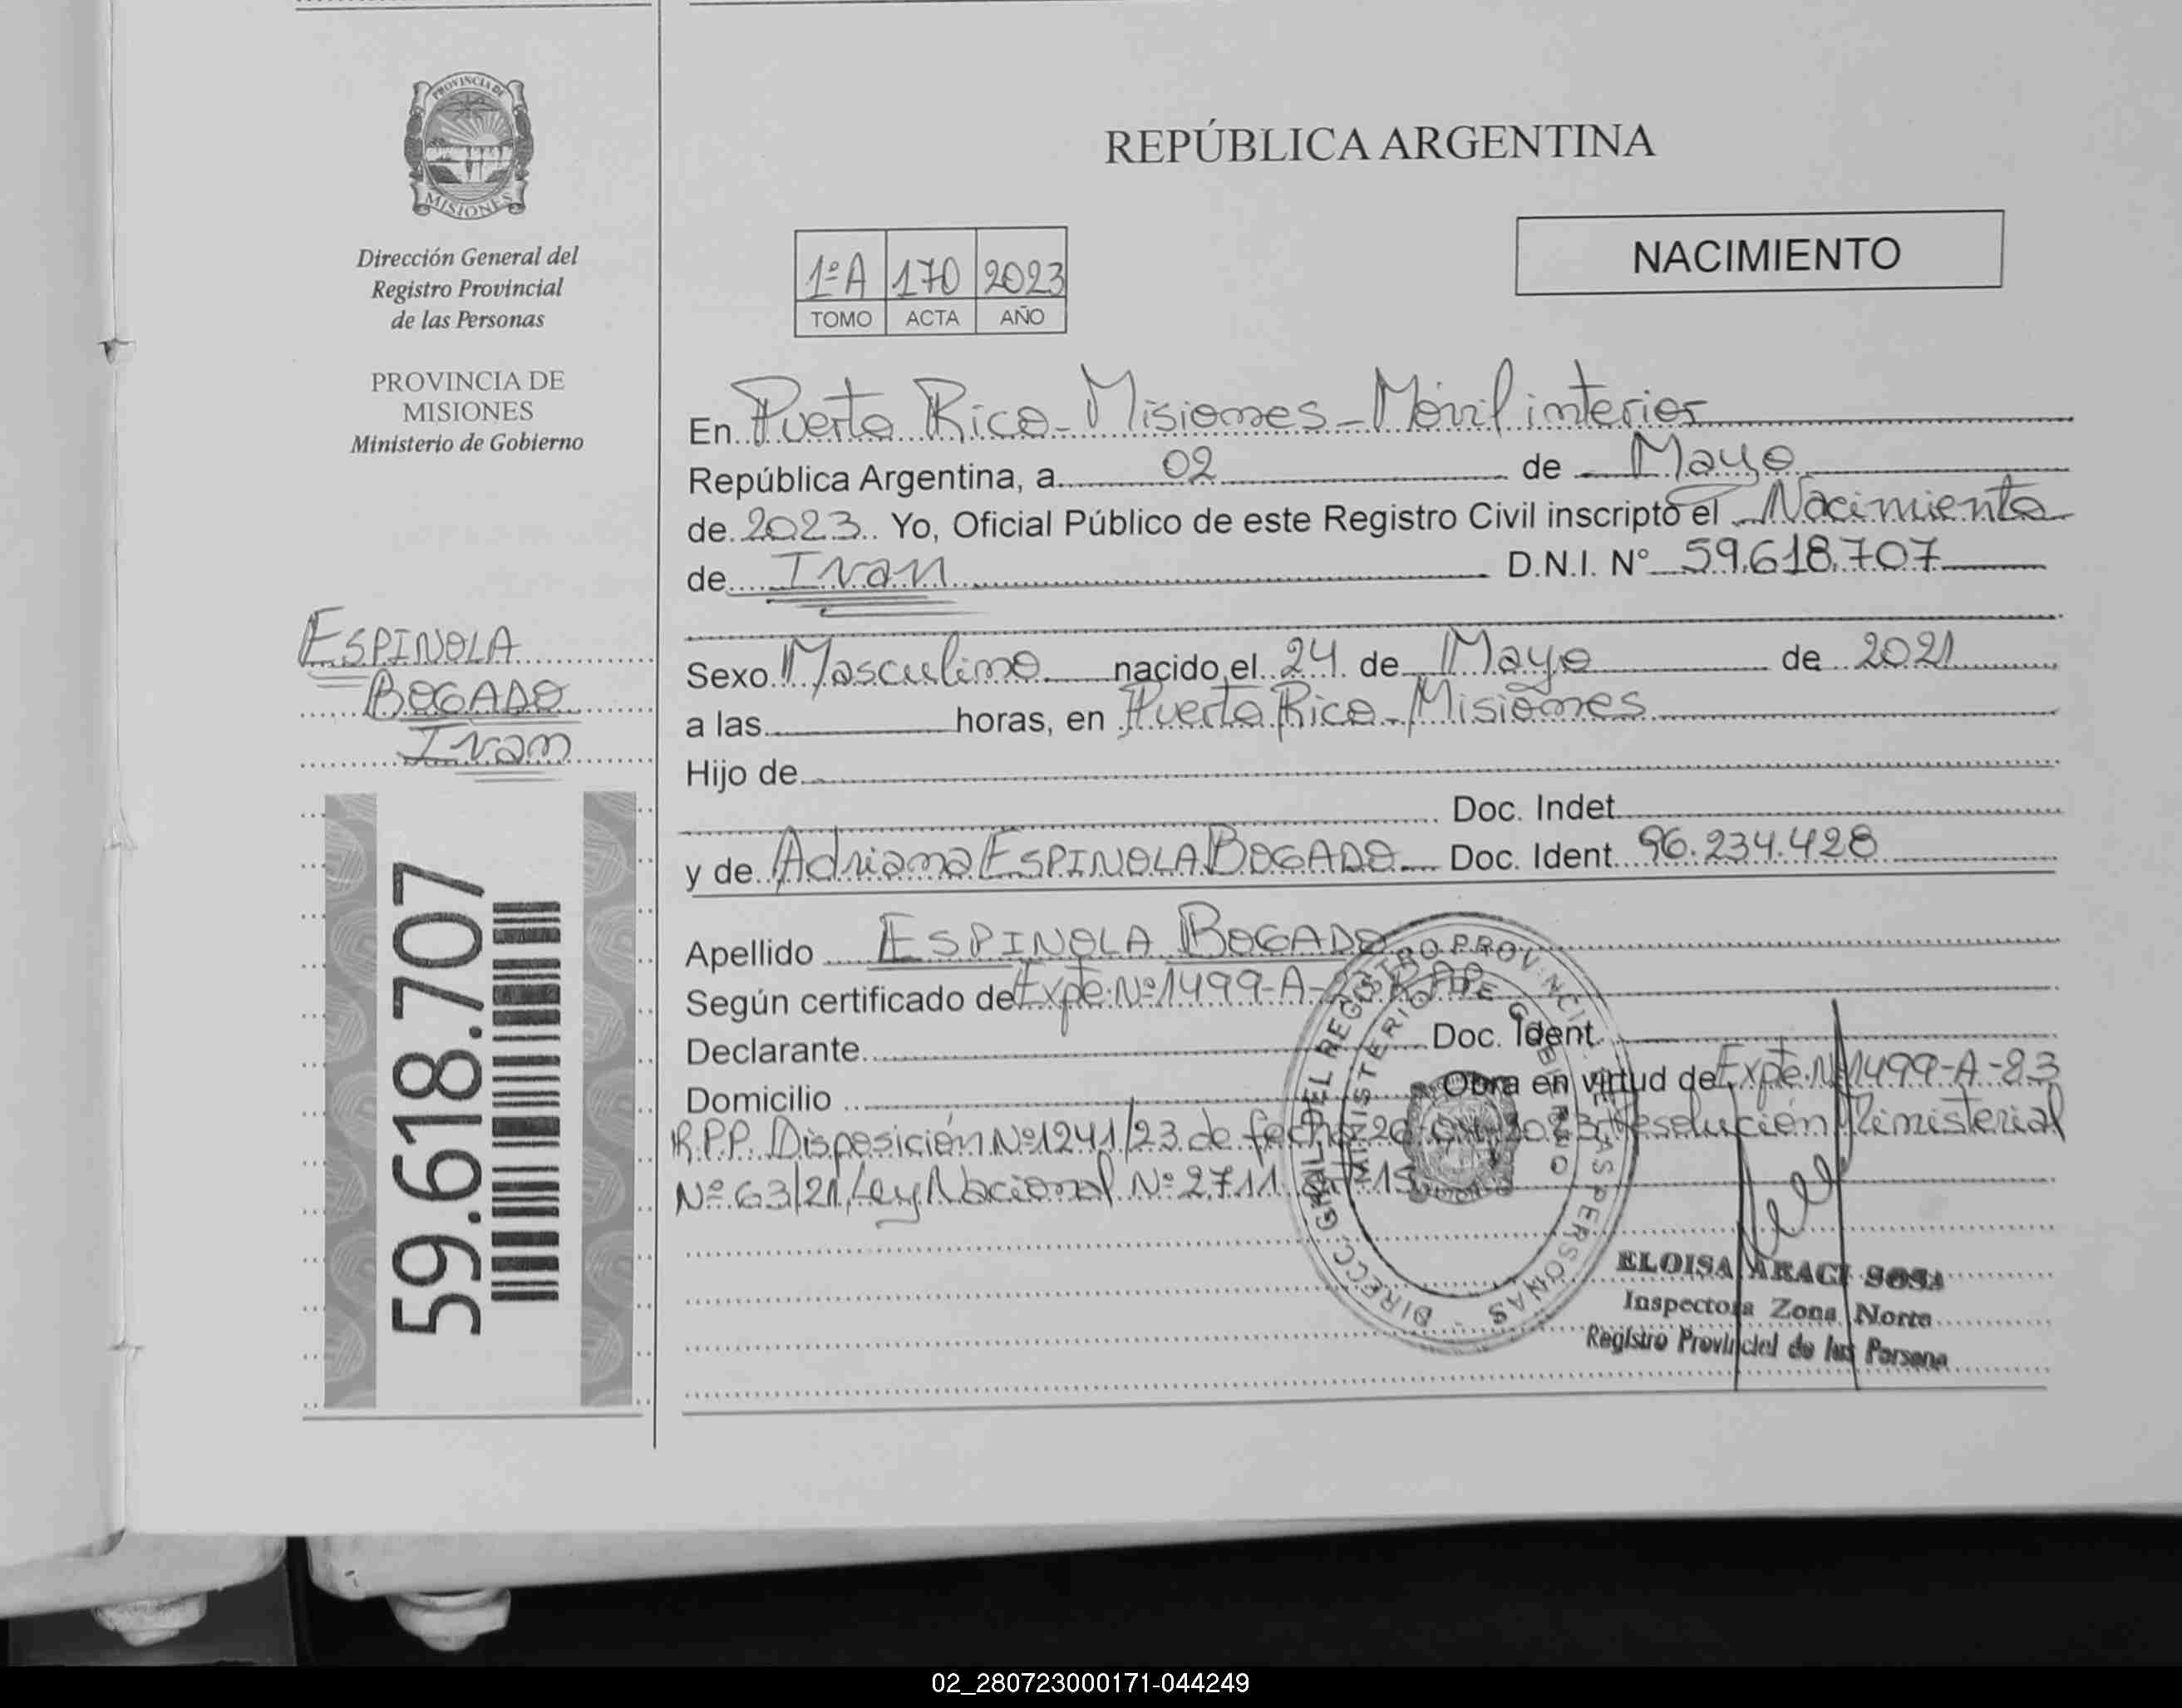 PROVINCIA DE
MISIONES
Dirección General del
Registro Provincial
de las Personas
PROVINCIA DE
MISIONES
Ministerio de Gobierno
ESPINOLA
BOGADO
Ivan
59.618.707
REPÚBLICA ARGENTINA
NACIMIENTO
1º A 170 2023
TOMO ACTA AÑO
En Puerto Rico - Misiones - Móvil interior
República Argentina, a 02 de Mayo
de 2023 Yo, Oficial Público de este Registro Civil inscripto el Nacimiento
de Ivan D.N.I. Nº 59.618.707
Sexo Masculino nacido el 24 de Mayo de 2021
a las horas, en Puerto Rico - Misiones
Hijo de
Doc. Indet
y de Adriana ESPINOLA BOGADO Doc. Ident 96.234.428
Apellido ESPINOLA BOGADO
Según certificado de Expte. Nº 1499-A-23
Declarante Doc. Ident
Domicilio Obra en virtud de Expte. Nº 1499-A-23
R.P.P. Disposición Nº 1241/23 de fecha 2023 Resolución Ministerial
Nº 63/21, Ley Nacional Nº 2711
DIRECC. GRAL. DEL REGISTRO PROVINCIAL DE LAS PERSONAS
MINISTERIO DE GOBIERNO
ELOISA ARACI SOSA
Inspectora Zona Norte
Registro Provincial de las Persona
02_280723000171-044249